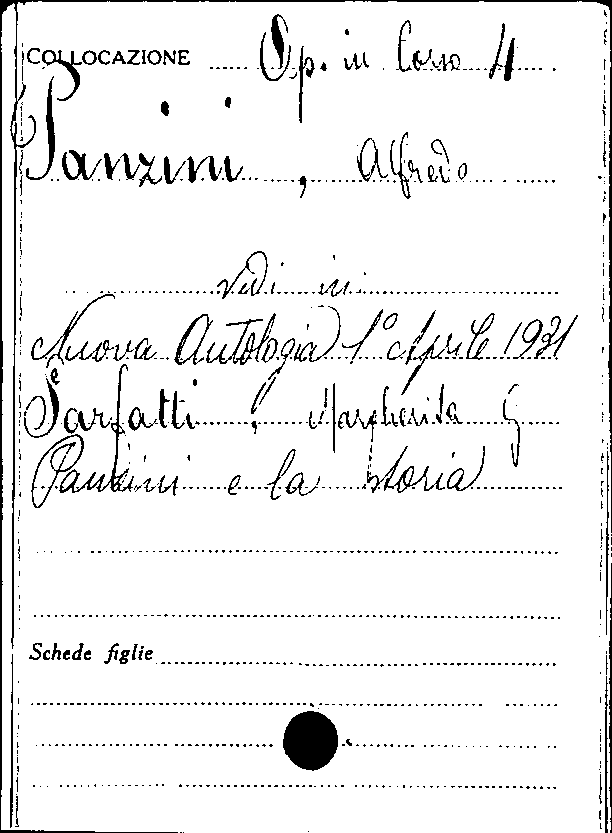 COLLOCAZIONE Op. in Corso 4
Panzini, Alfredo
vedi in
Nuova Antologia 1° Aprile 1931
Sarfatti, Margherita G
Panzini e la storia
Schede figlie